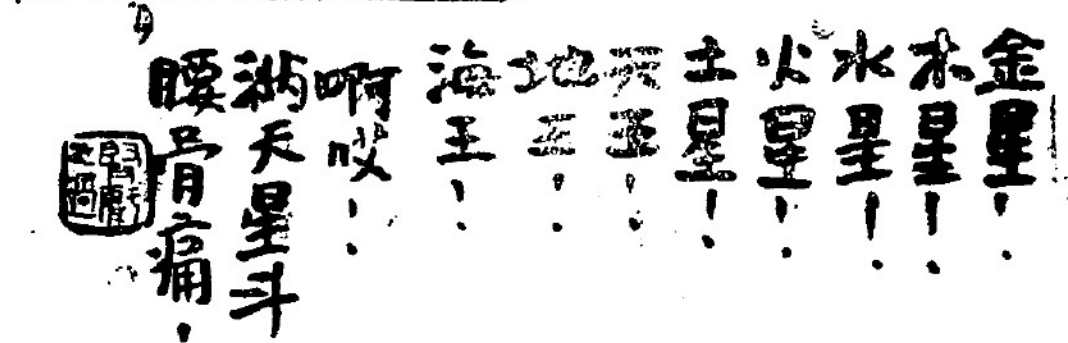 金星!
木星!
水星!
火星!
土星!
天王!
地王!
海王!
啊哎!
满天星斗
腰骨痛!